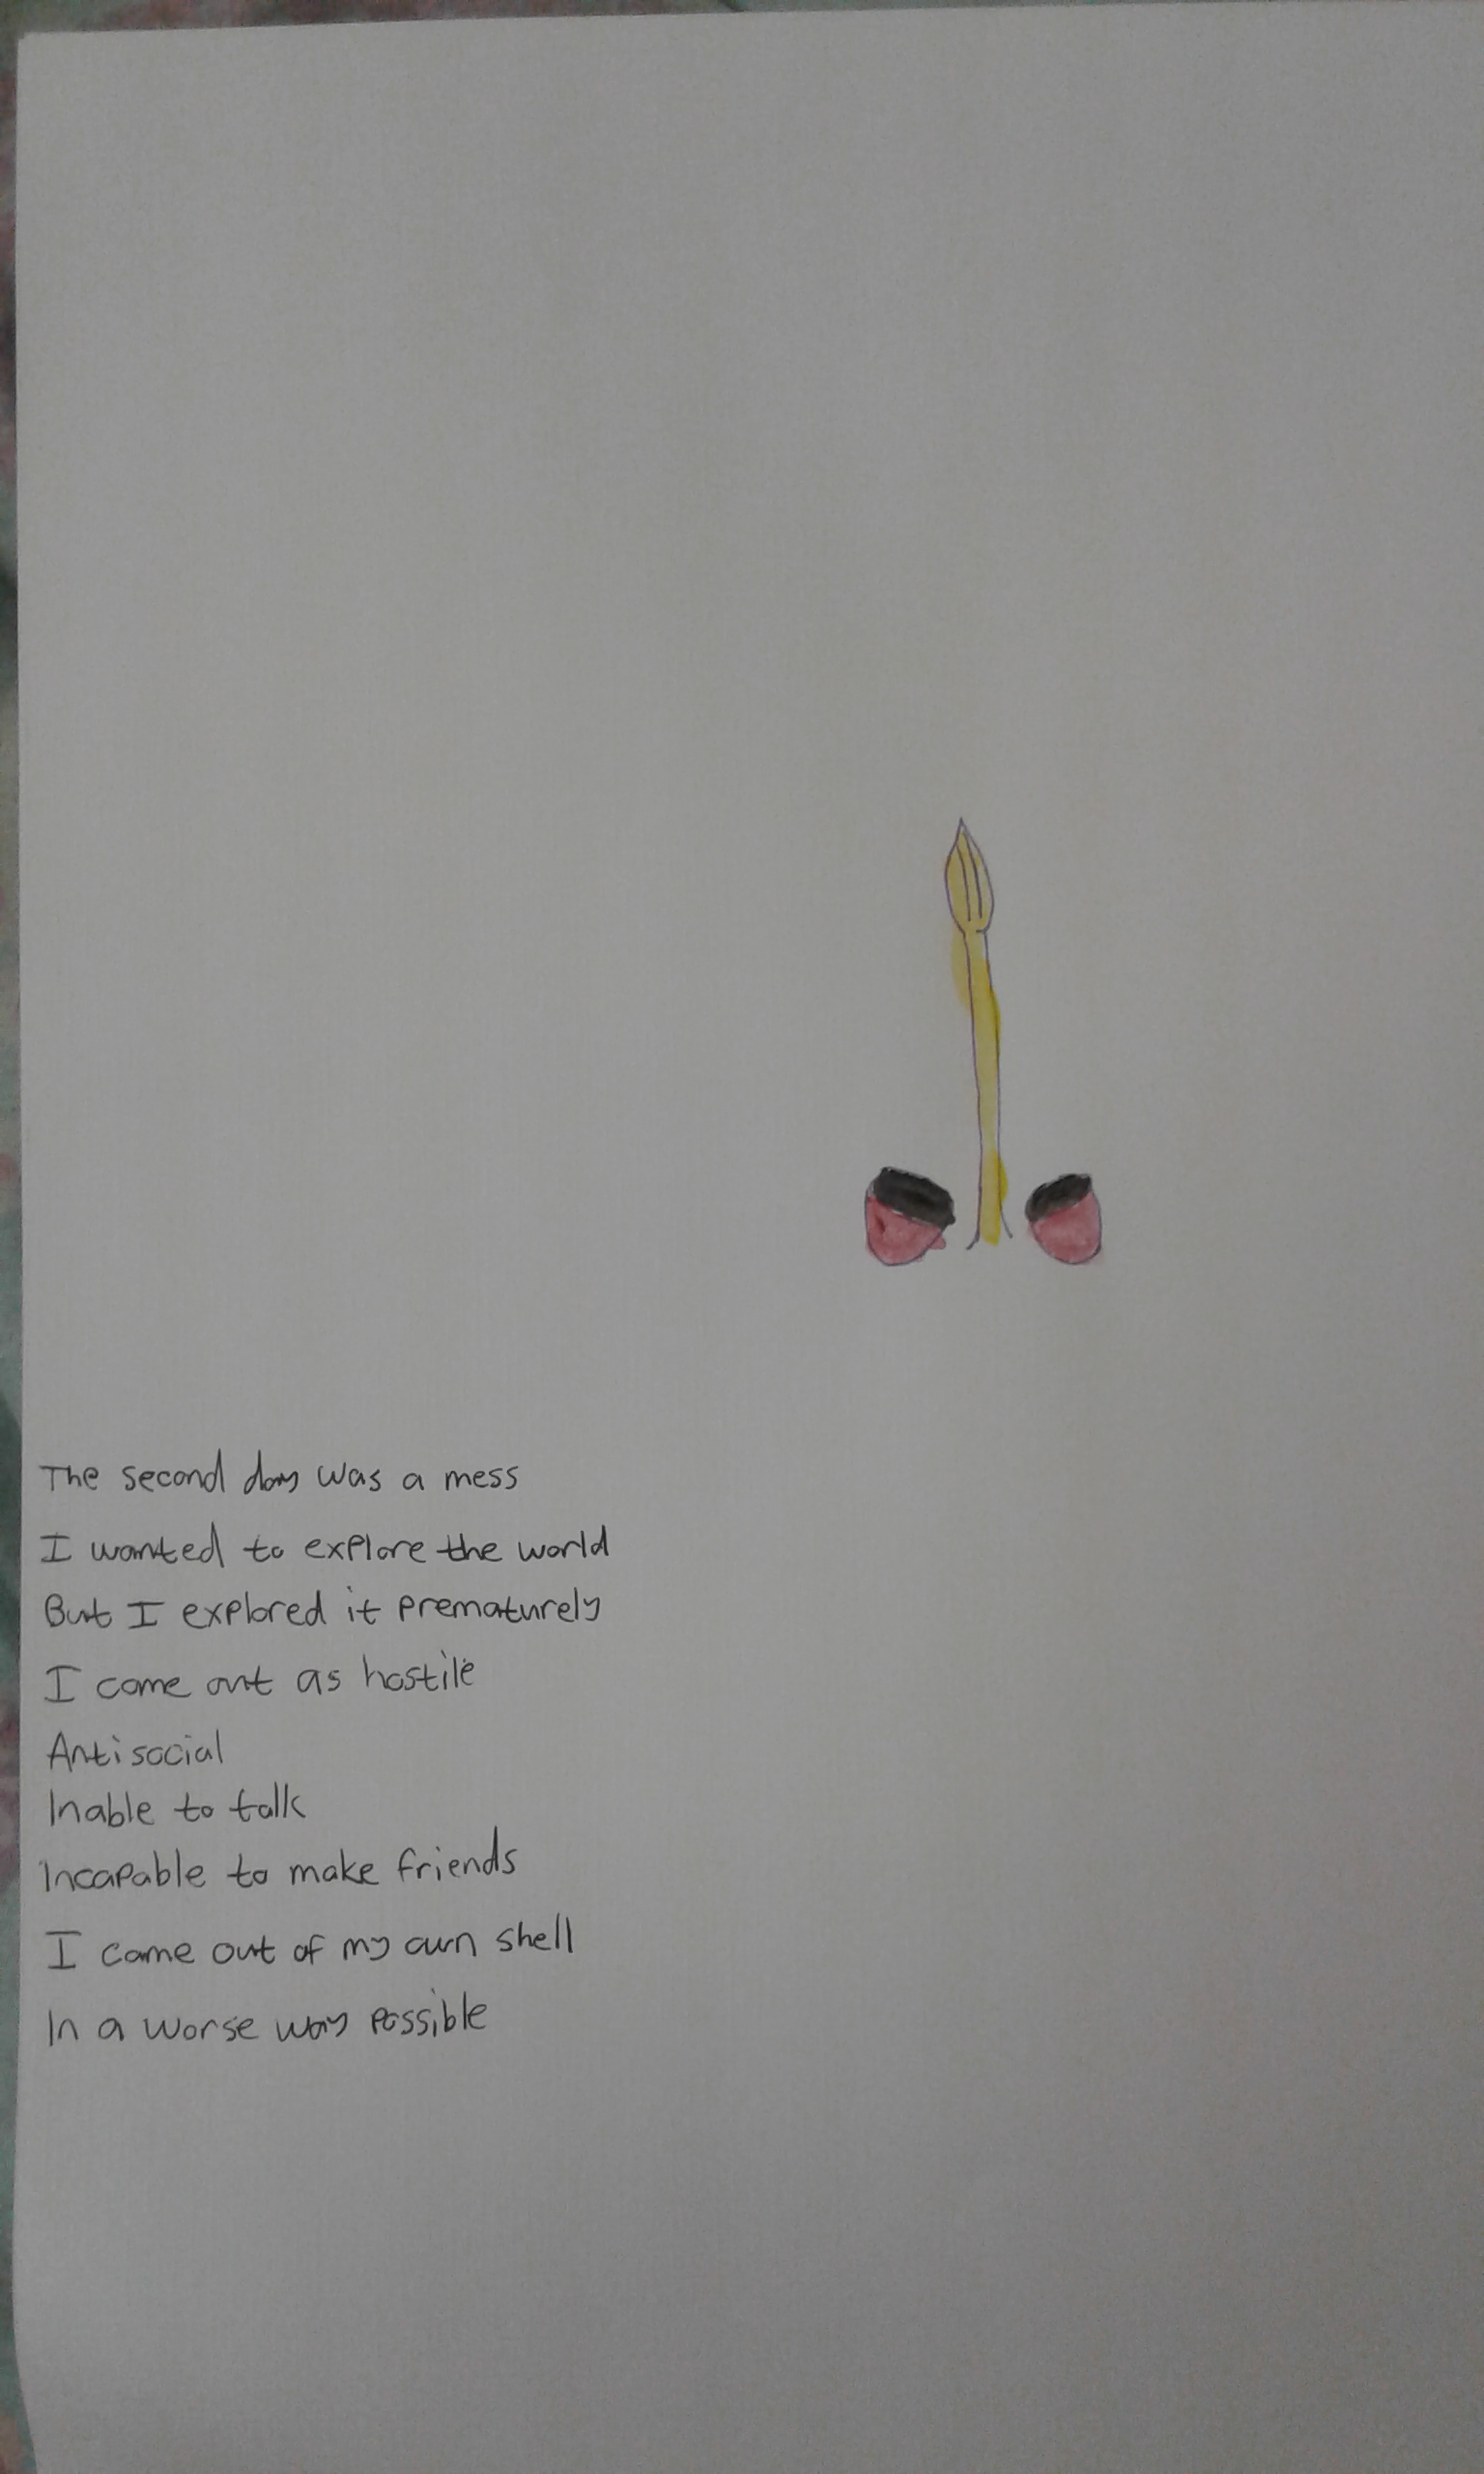 The second day was a mess
I wanted to explore the world
But I explored it prematurely
I came out as hostile
Antisocial
Inable to talk
Incapable to make friends
I came out of my own shell
In a worse way possible